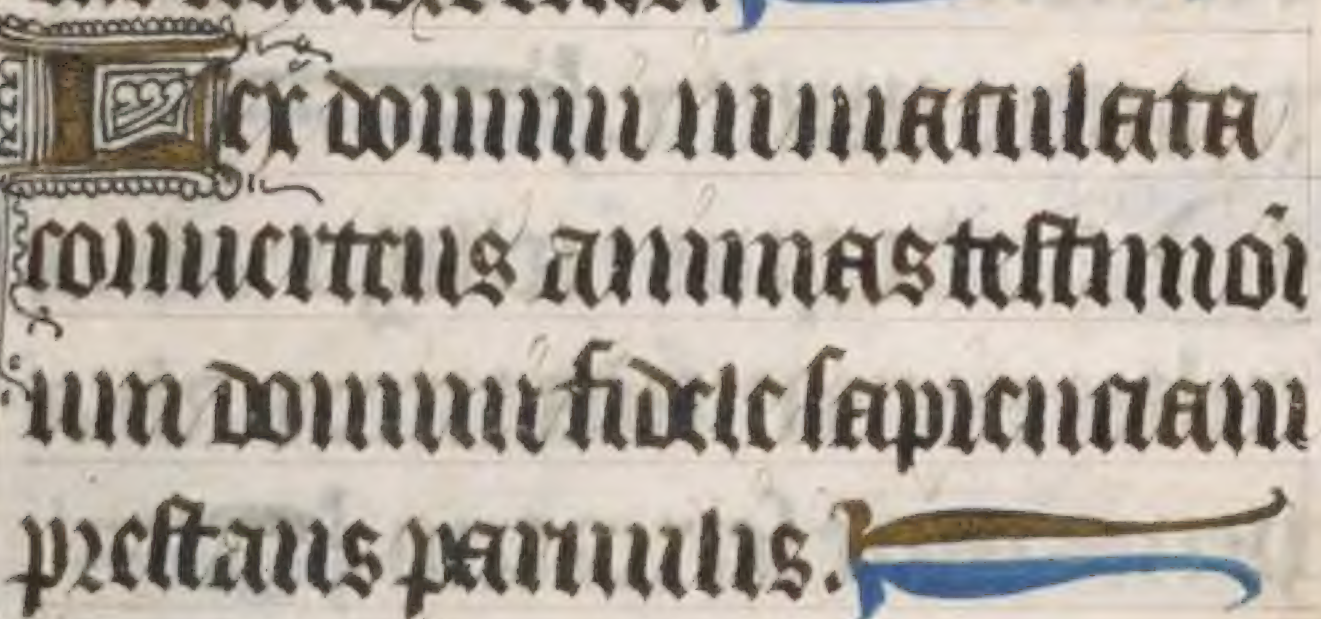 Lex domini inmaculata
conuertens animas testimoni
um domini fidele sapienciam
prestans paruulis.